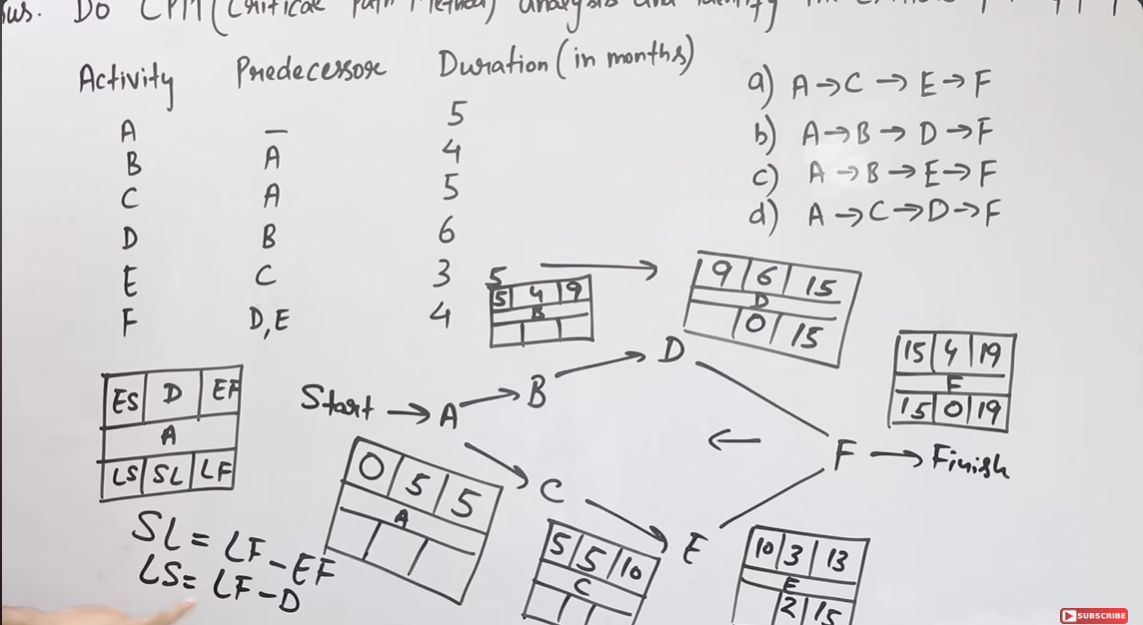 us. Do CPM (Critical Path Method) analysis and identify the
Activity Predecessor Duration (in months)
A – 5
B A 4
C A 5
D B 6
E C 3
F D,E 4
a) A→C→E→F
b) A→B→D→F
c) A→B→E→F
d) A→C→D→F
5
5 4 9
B
9 6 15
D
0 15
15 4 19
F
15 0 19
ES D EF
A
LS SL LF
Start → A → B → D
F → Finish
C → E
0 5 5
A
5 5 10
C
10 3 13
E
2 15
SL = LF - EF
LS = LF - D
SUBSCRIBE